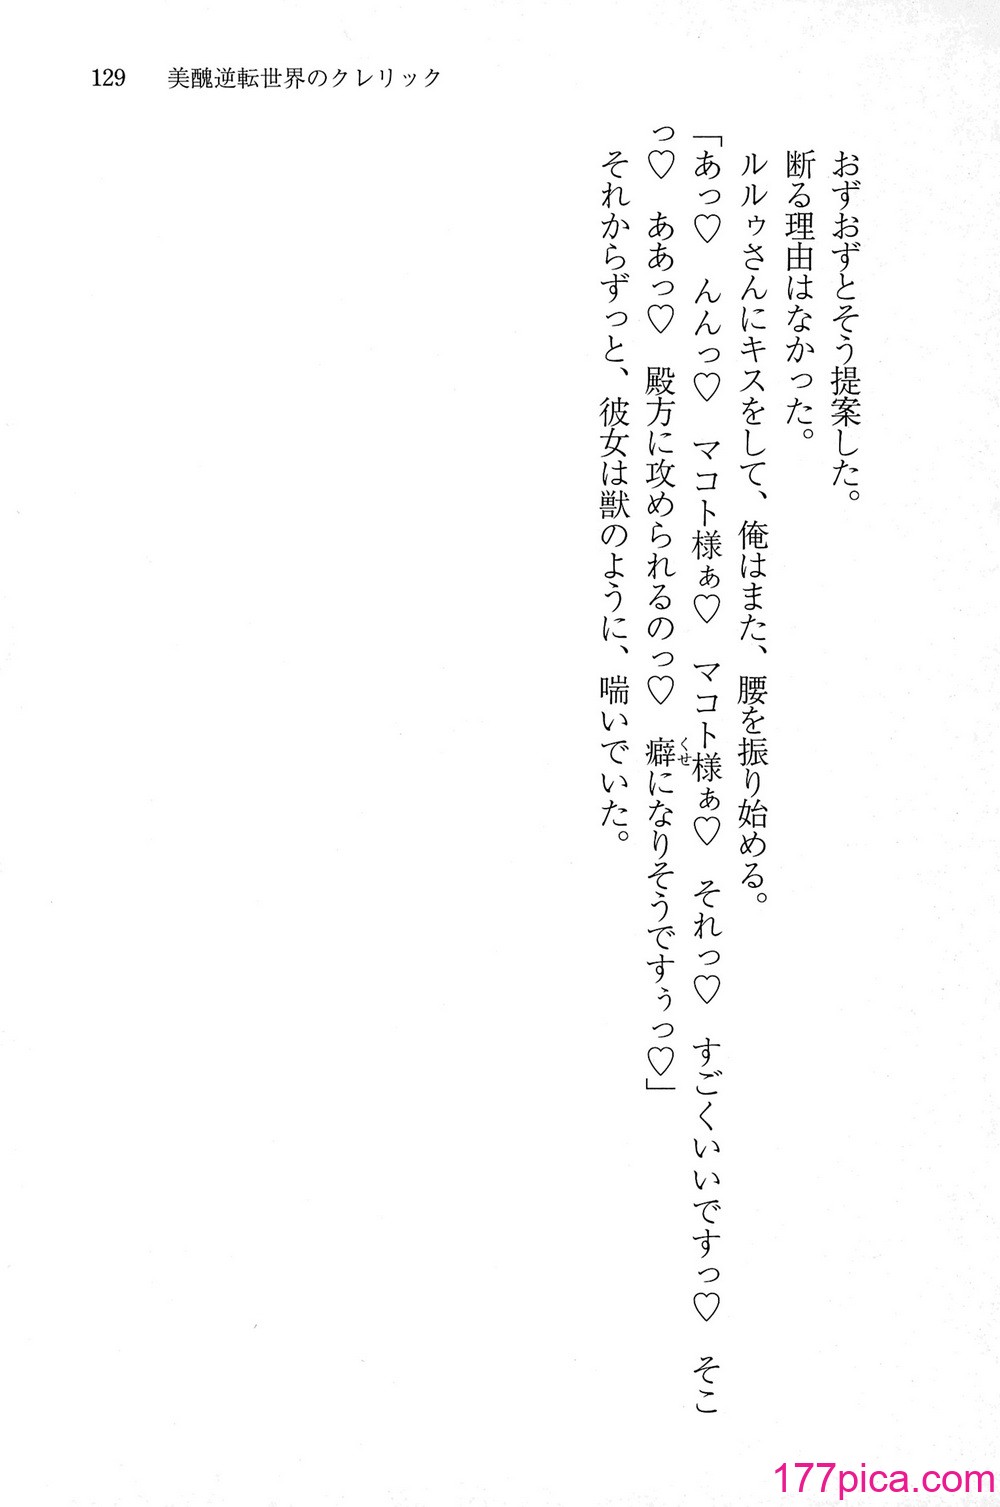 129　美醜逆転世界のクレリック
おずおずとそう提案した。
断る理由はなかった。
ルルゥさんにキスをして、俺はまた、腰を振り始める。
「あっ♡　んんっ♡　マコト様ぁ♡　マコト様ぁ♡　それっ♡　すごくいいですっ♡　そこ
っ♡　ああっ♡　殿方に攻められるのっ♡　癖になりそうですぅっ♡」
くせ
それからずっと、彼女は獣のように、喘いでいた。
177pica.com